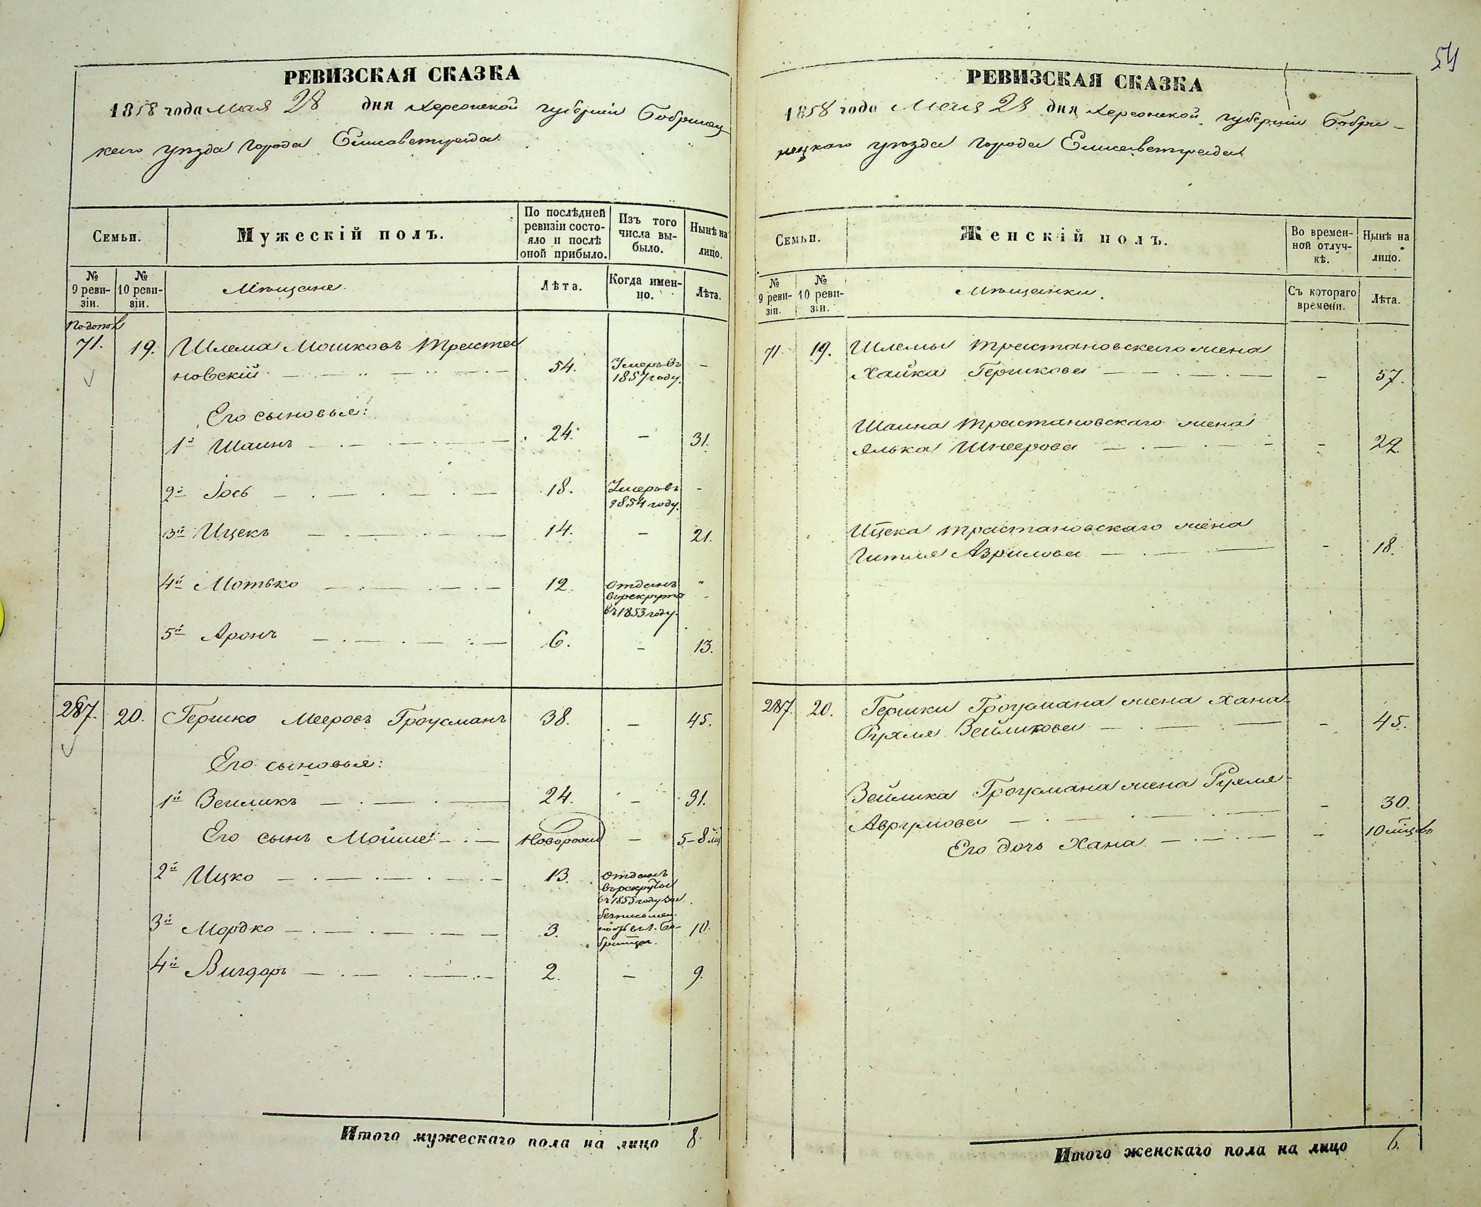 54
РЕВИЗСКАЯ СКАЗКА
1858 года Мая 28 дня Херсонской губерніи Бобринец
каго уѣзда города Елисаветграда.
Семьи.
Мужескій полъ.
По послѣдней ревизіи состояло и послѣ оной прибыло.
Изъ того числа выбыло.
Нынѣ на лицо.
№ 9 ревизіи.
№ 10 ревизіи.
Мѣщане.
Лѣта.
Когда именно.
Лѣта.
71. 19. Шлема Мошковъ Тристановскій 54. Умеръ въ 1857 году. –
Его сыновья:
1й Шаинъ 24. – 31.
2й Іось 18. Умеръ въ 1854 году. –
3й Ицекъ 14. – 21.
4й Мотько 12. отданъ въ рекруты въ 1853 году. "
5й Аронъ 6. – 13.
287. 20. Гершко Мееровъ Гроусманъ 38. – 45.
Его сыновья:
1й Вейликъ 24. – 31.
Его сынъ Мойше Новорожд – 5-8 мц
2й Ицко 13. отданъ въ рекруты въ 1853 году
3й Мордко 3. 10.
4й Вигдоръ 2. – 9.
Итого мужескаго пола на лицо 8.
РЕВИЗСКАЯ СКАЗКА
1858 года Мая 28 дня Херсонской губерніи Бобри-
нецкаго уѣзда города Елисаветграда
Семьи.
Женскій полъ.
Во временной отлучкѣ.
Нынѣ на лицо.
№ 9 ревизіи.
№ 10 ревизіи.
Мѣщанки.
Съ котораго времени.
Лѣта.
71. 19. Шлемы Тристановскаго жена
Хайка Гершкова – 57.
Шаина Тристановскаго жена
Элька Шнеерова – 22.
Ицека Тристановскаго жена
Гитля Азрилова – 18.
287. 20. Гершки Гроусмана жена Хана
Рухля Вейликова – 45.
Вейлика Гроусмана жена Рухля
Аврумова – 30.
Его дочь Хана – 10 мѣцовъ
Итого женскаго пола на лицо 6.